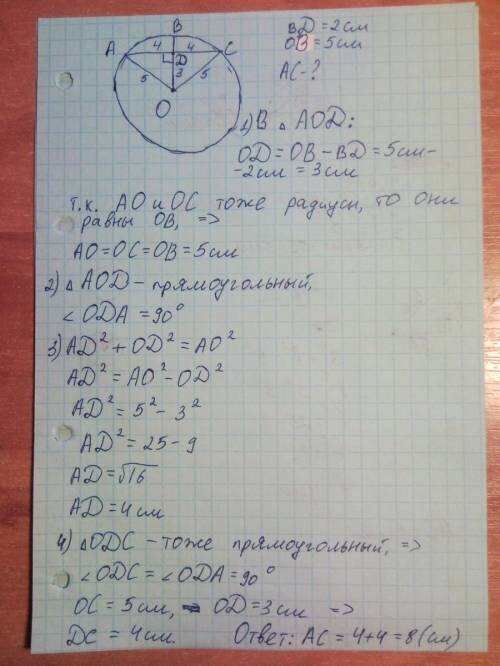 B
BD = 2см
OB = 5см
A 4 4 C
D
AC - ?
5 3 5
O
1) В △ AOD:
OD = OB - BD = 5см -
- 2см = 3см
т.к. AO и OC тоже радиусы, то они
равны OB, =>
AO = OC = OB = 5см
2) △ AOD - прямоугольный,
∠ ODA = 90°
3) AD² + OD² = AO²
AD² = AO² - OD²
AD² = 5² - 3²
AD² = 25 - 9
AD = √16
AD = 4 см
4) △ ODC - тоже прямоугольный, =>
∠ ODC = ∠ ODA = 90°
OC = 5см, OD = 3см =>
DC = 4см. Ответ: AC = 4+4 = 8 (см)